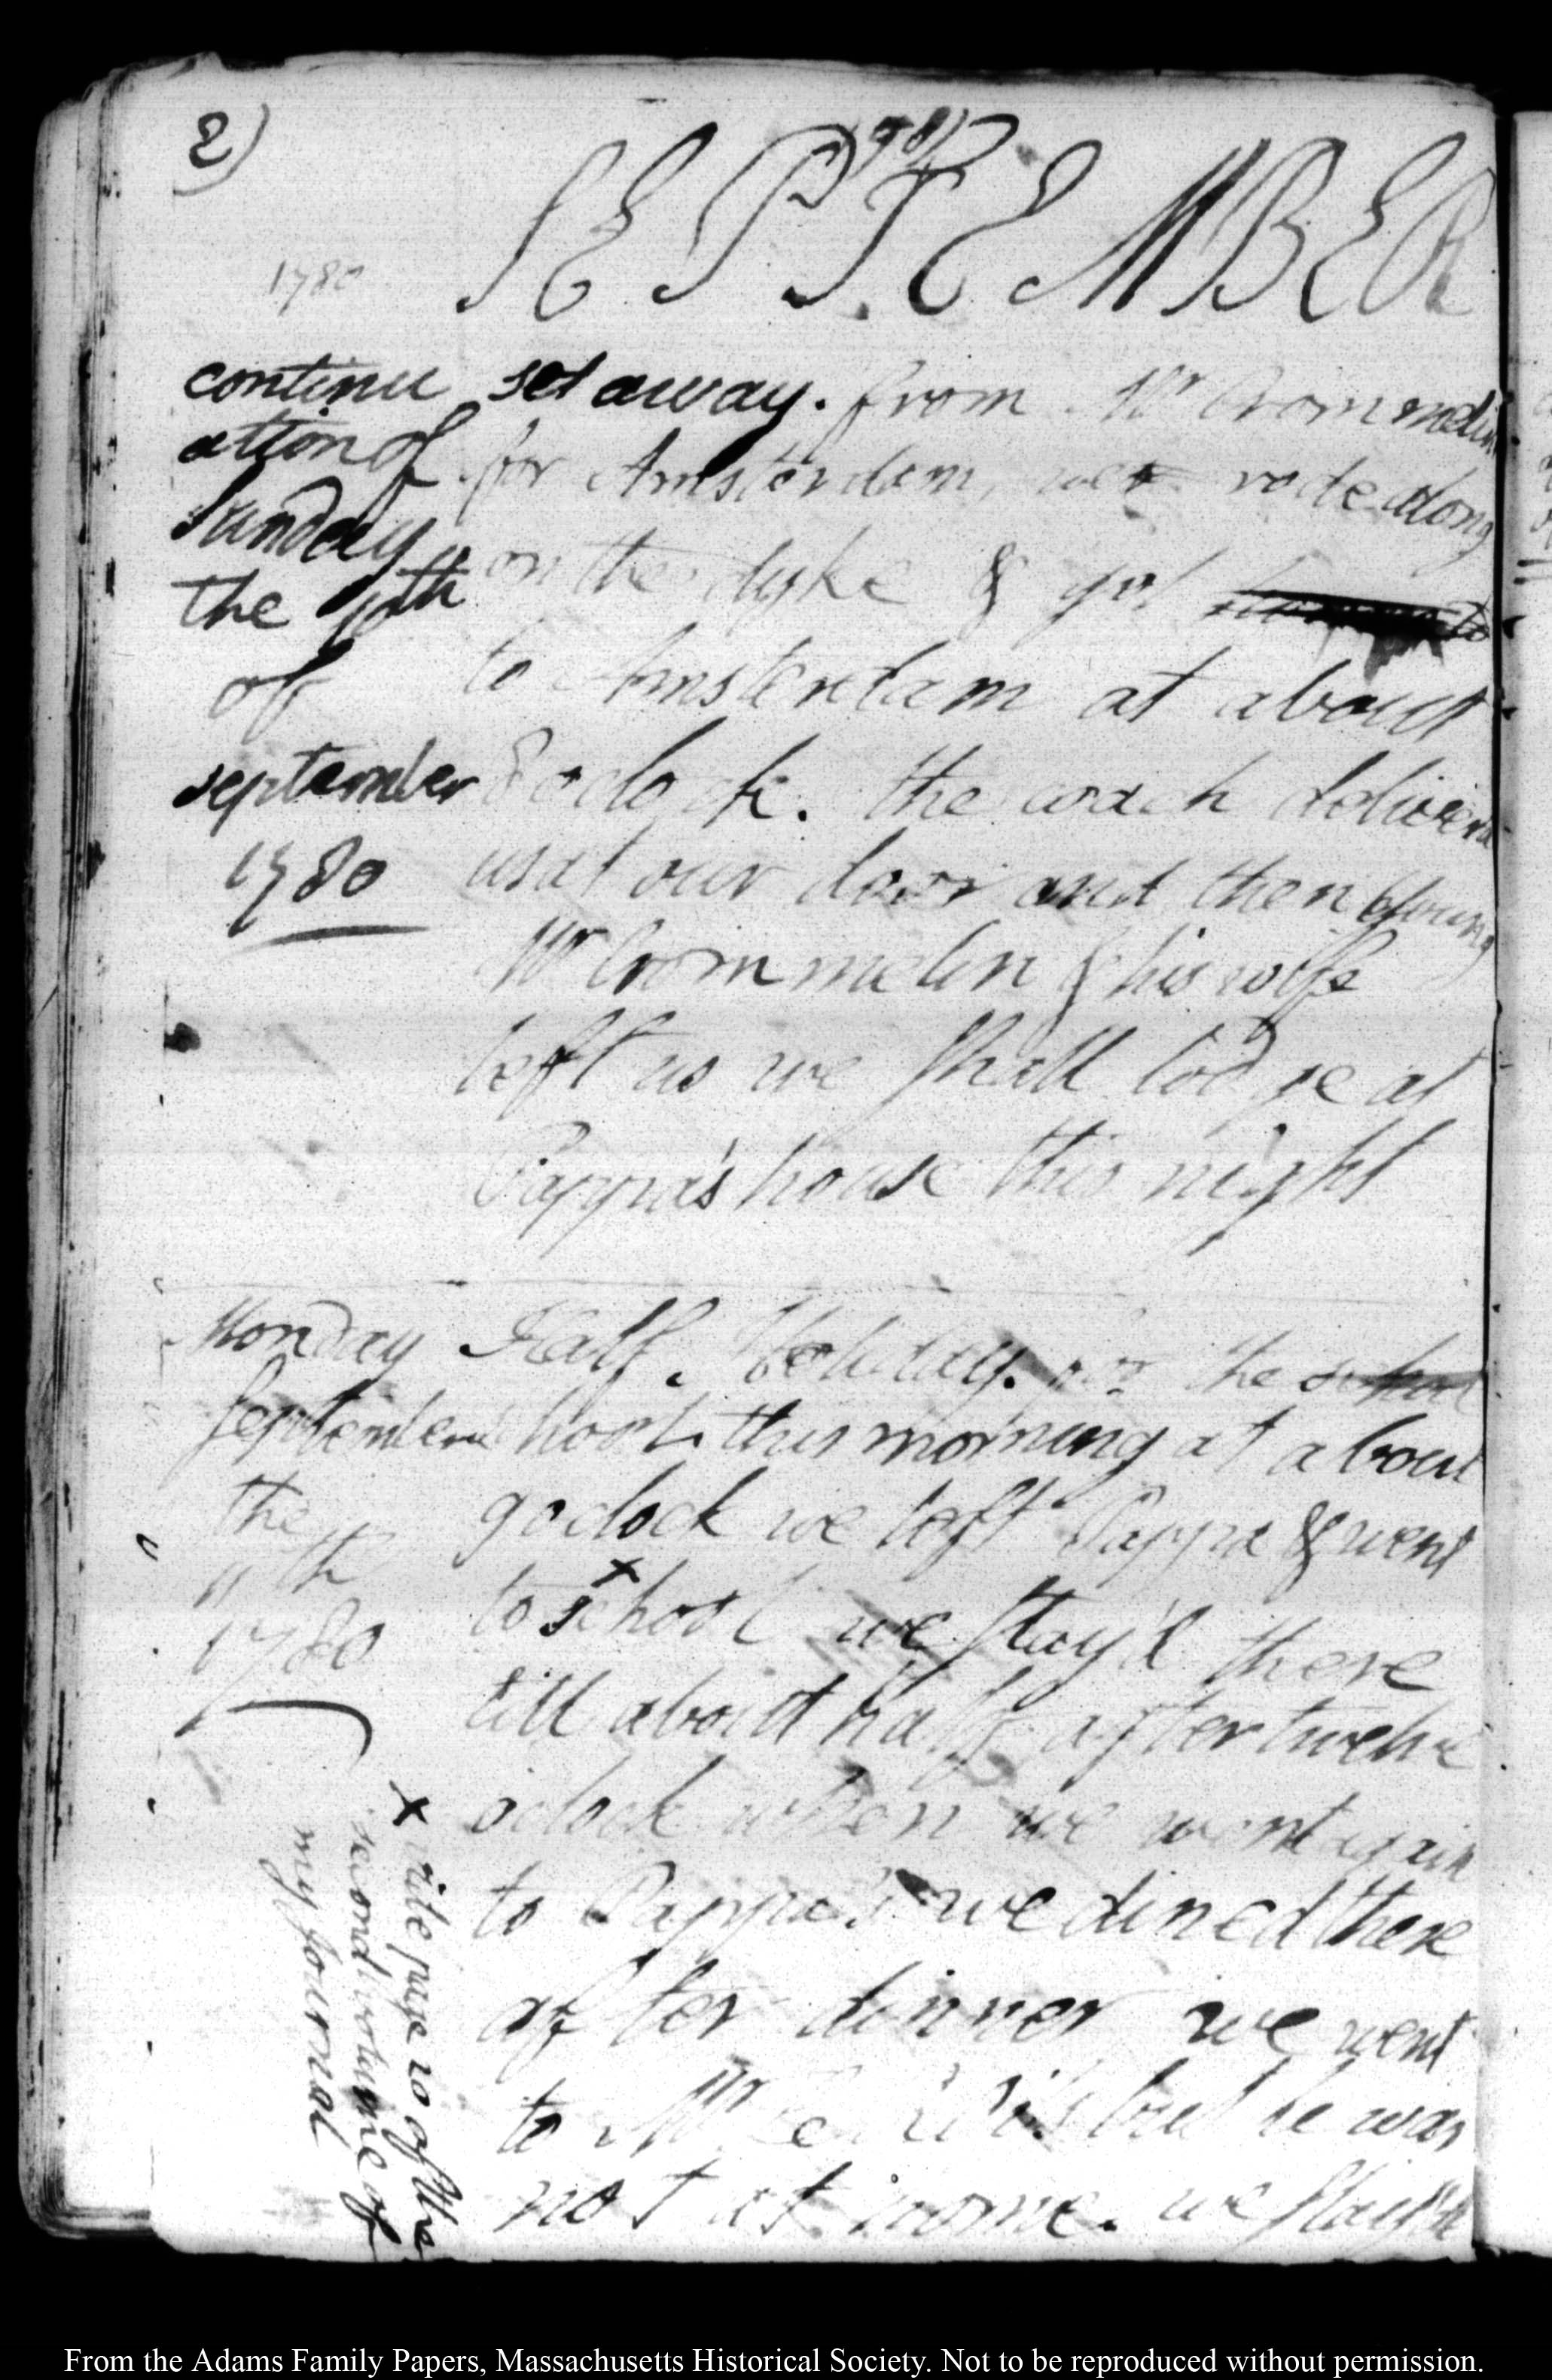 2)
1780
SEPTEMBER
1780
continu
ation of
Sunday
the 10th
of
september
1780
set away. from Mr Crommelin
for Amsterdam, we rode along
on the dyke & got
to Amsterdam at about
8 oclock. the coach deliverd
us at our door and then young
Mr Crommelin & his wife
left us we shall lodge at
Pappa's house this night
Monday
September
the
11th
1780
Half. Holiday. the school
school this morning at about
9 oclock we left Pappa & went
to school x we stay'd there
till about half after twelve
oclock when we went again
to Pappa's we dined there
after dinner we went
to Mr but he was
not at home. we stay'd
x vide page 20 of the
second volume of
my journal
From the Adams Family Papers, Massachusetts Historical Society. Not to be reproduced without permission.